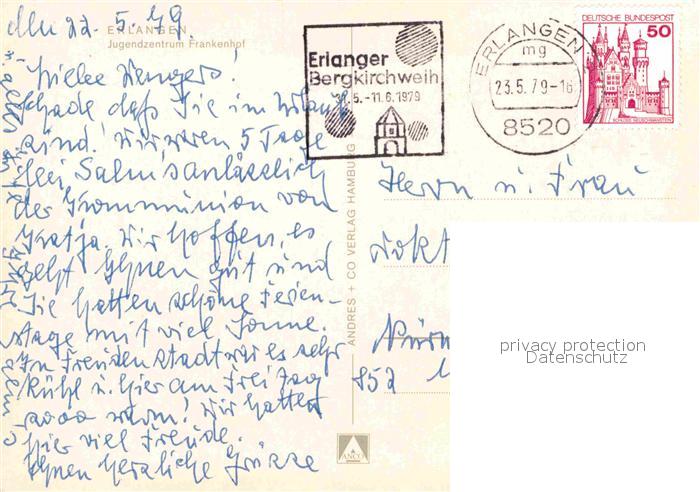 22.5.79.
ERLANGEN
Jugendzentrum Frankenhof
Schade daß Sie im Urlaub
sind! Wir waren 5 Tage
bei Salms anlässlich
der Kommunion von
Katja. Wir hoffen, es
geht Ihnen gut und
Sie hatten schöne Ferien-
tage mit viel Sonne.
In Freudenstadt war es sehr
kühl u. hier am Freitag
sooo warm! Wir hatten
hier viel Freude.
Ihnen herzliche Grüsse
ANDRES + CO VERLAG HAMBURG
ANCO
Erlanger
Bergkirchweih
5.-11.6.1979
ERLANGEN
mg
23.5.79-16
8520
DEUTSCHE BUNDESPOST
50
SCHLOSS NEUSCHWANSTEIN
Herrn u. Frau
Dokt
Nürn
852
privacy protection
Datenschutz